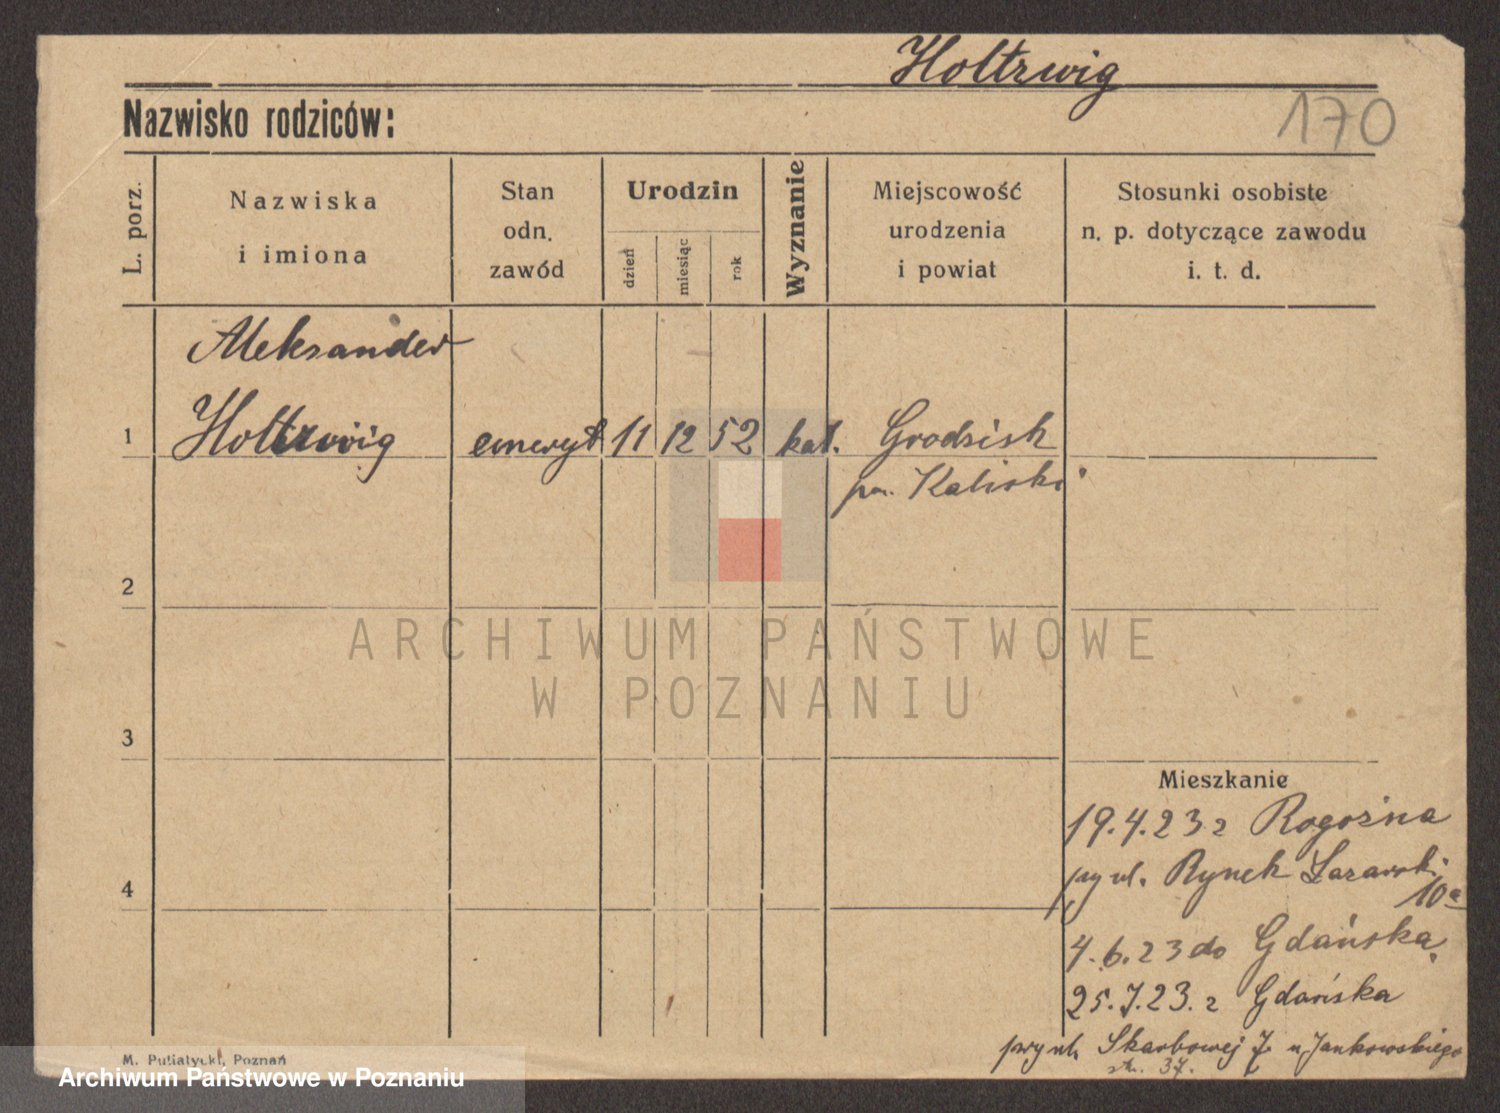 Holtzwig
170
Nazwisko rodziców:
L. porz.
Nazwiska
i imiona
Stan
odn.
zawód
Urodzin
dzień
miesiąc
rok
Wyznanie
Miejscowość
urodzenia
i powiat
Stosunki osobiste
n. p. dotyczące zawodu
i. t. d.
Aleksander
1 Holtzwig emeryt 11 12 52 kat. Grodzisk
pow. Kaliski
2
ARCHIWUM PAŃSTWOWE
W POZNANIU
3
Mieszkanie
19.4.23 z Rogoźna
4
przy ul. Rynek Łazarski
10a
4.6.23 do Gdańska
25.7.23. z Gdańska
przy ul. Skarbowej 7 u Jankowskiego
str. 37.
M. Putiatycki, Poznań
Archiwum Państwowe w Poznaniu